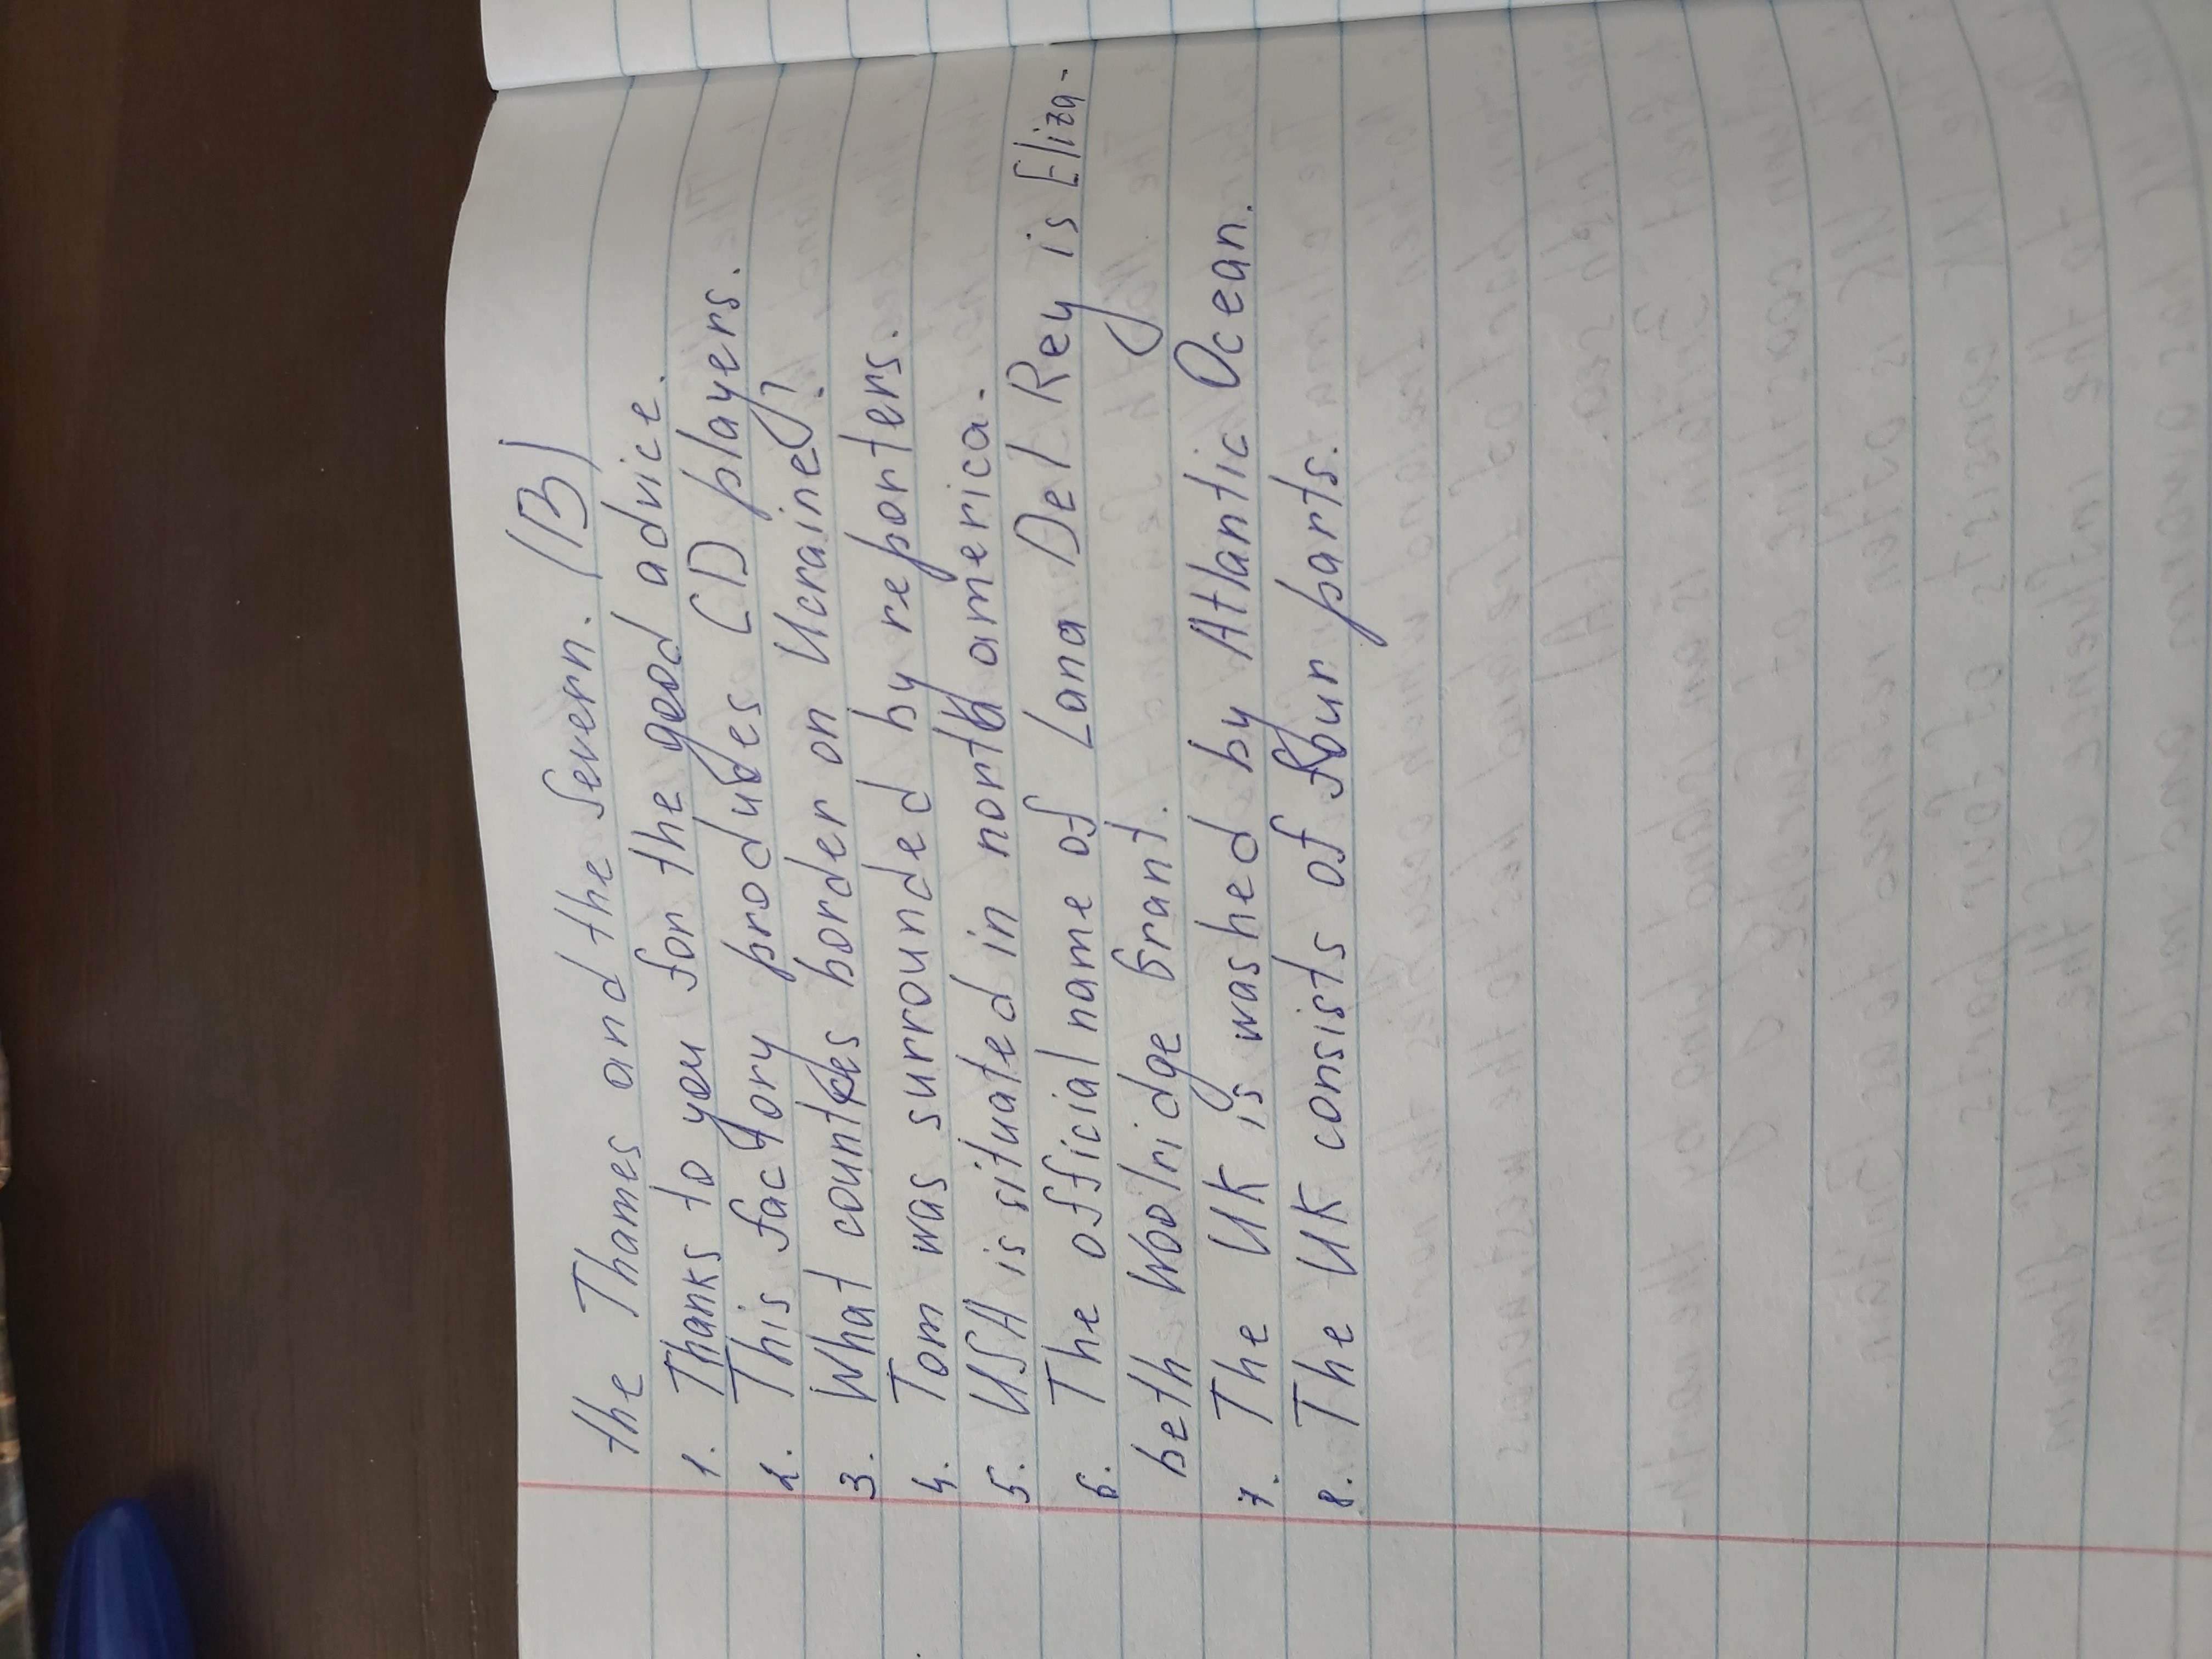 the Thames and the Severn. (B)
1. Thanks to you for the good advice.
2. This factory produces CD players.
3. What countres border on Ucraine?
4. Tom was surrounded by reporters.
5. USA is situated in north america.
6. The official name of Lana Del Rey is Eliza-
beth Woolridge Grant.
7. The UK is washed by Atlantic Ocean.
8. The UK consists of four parts.